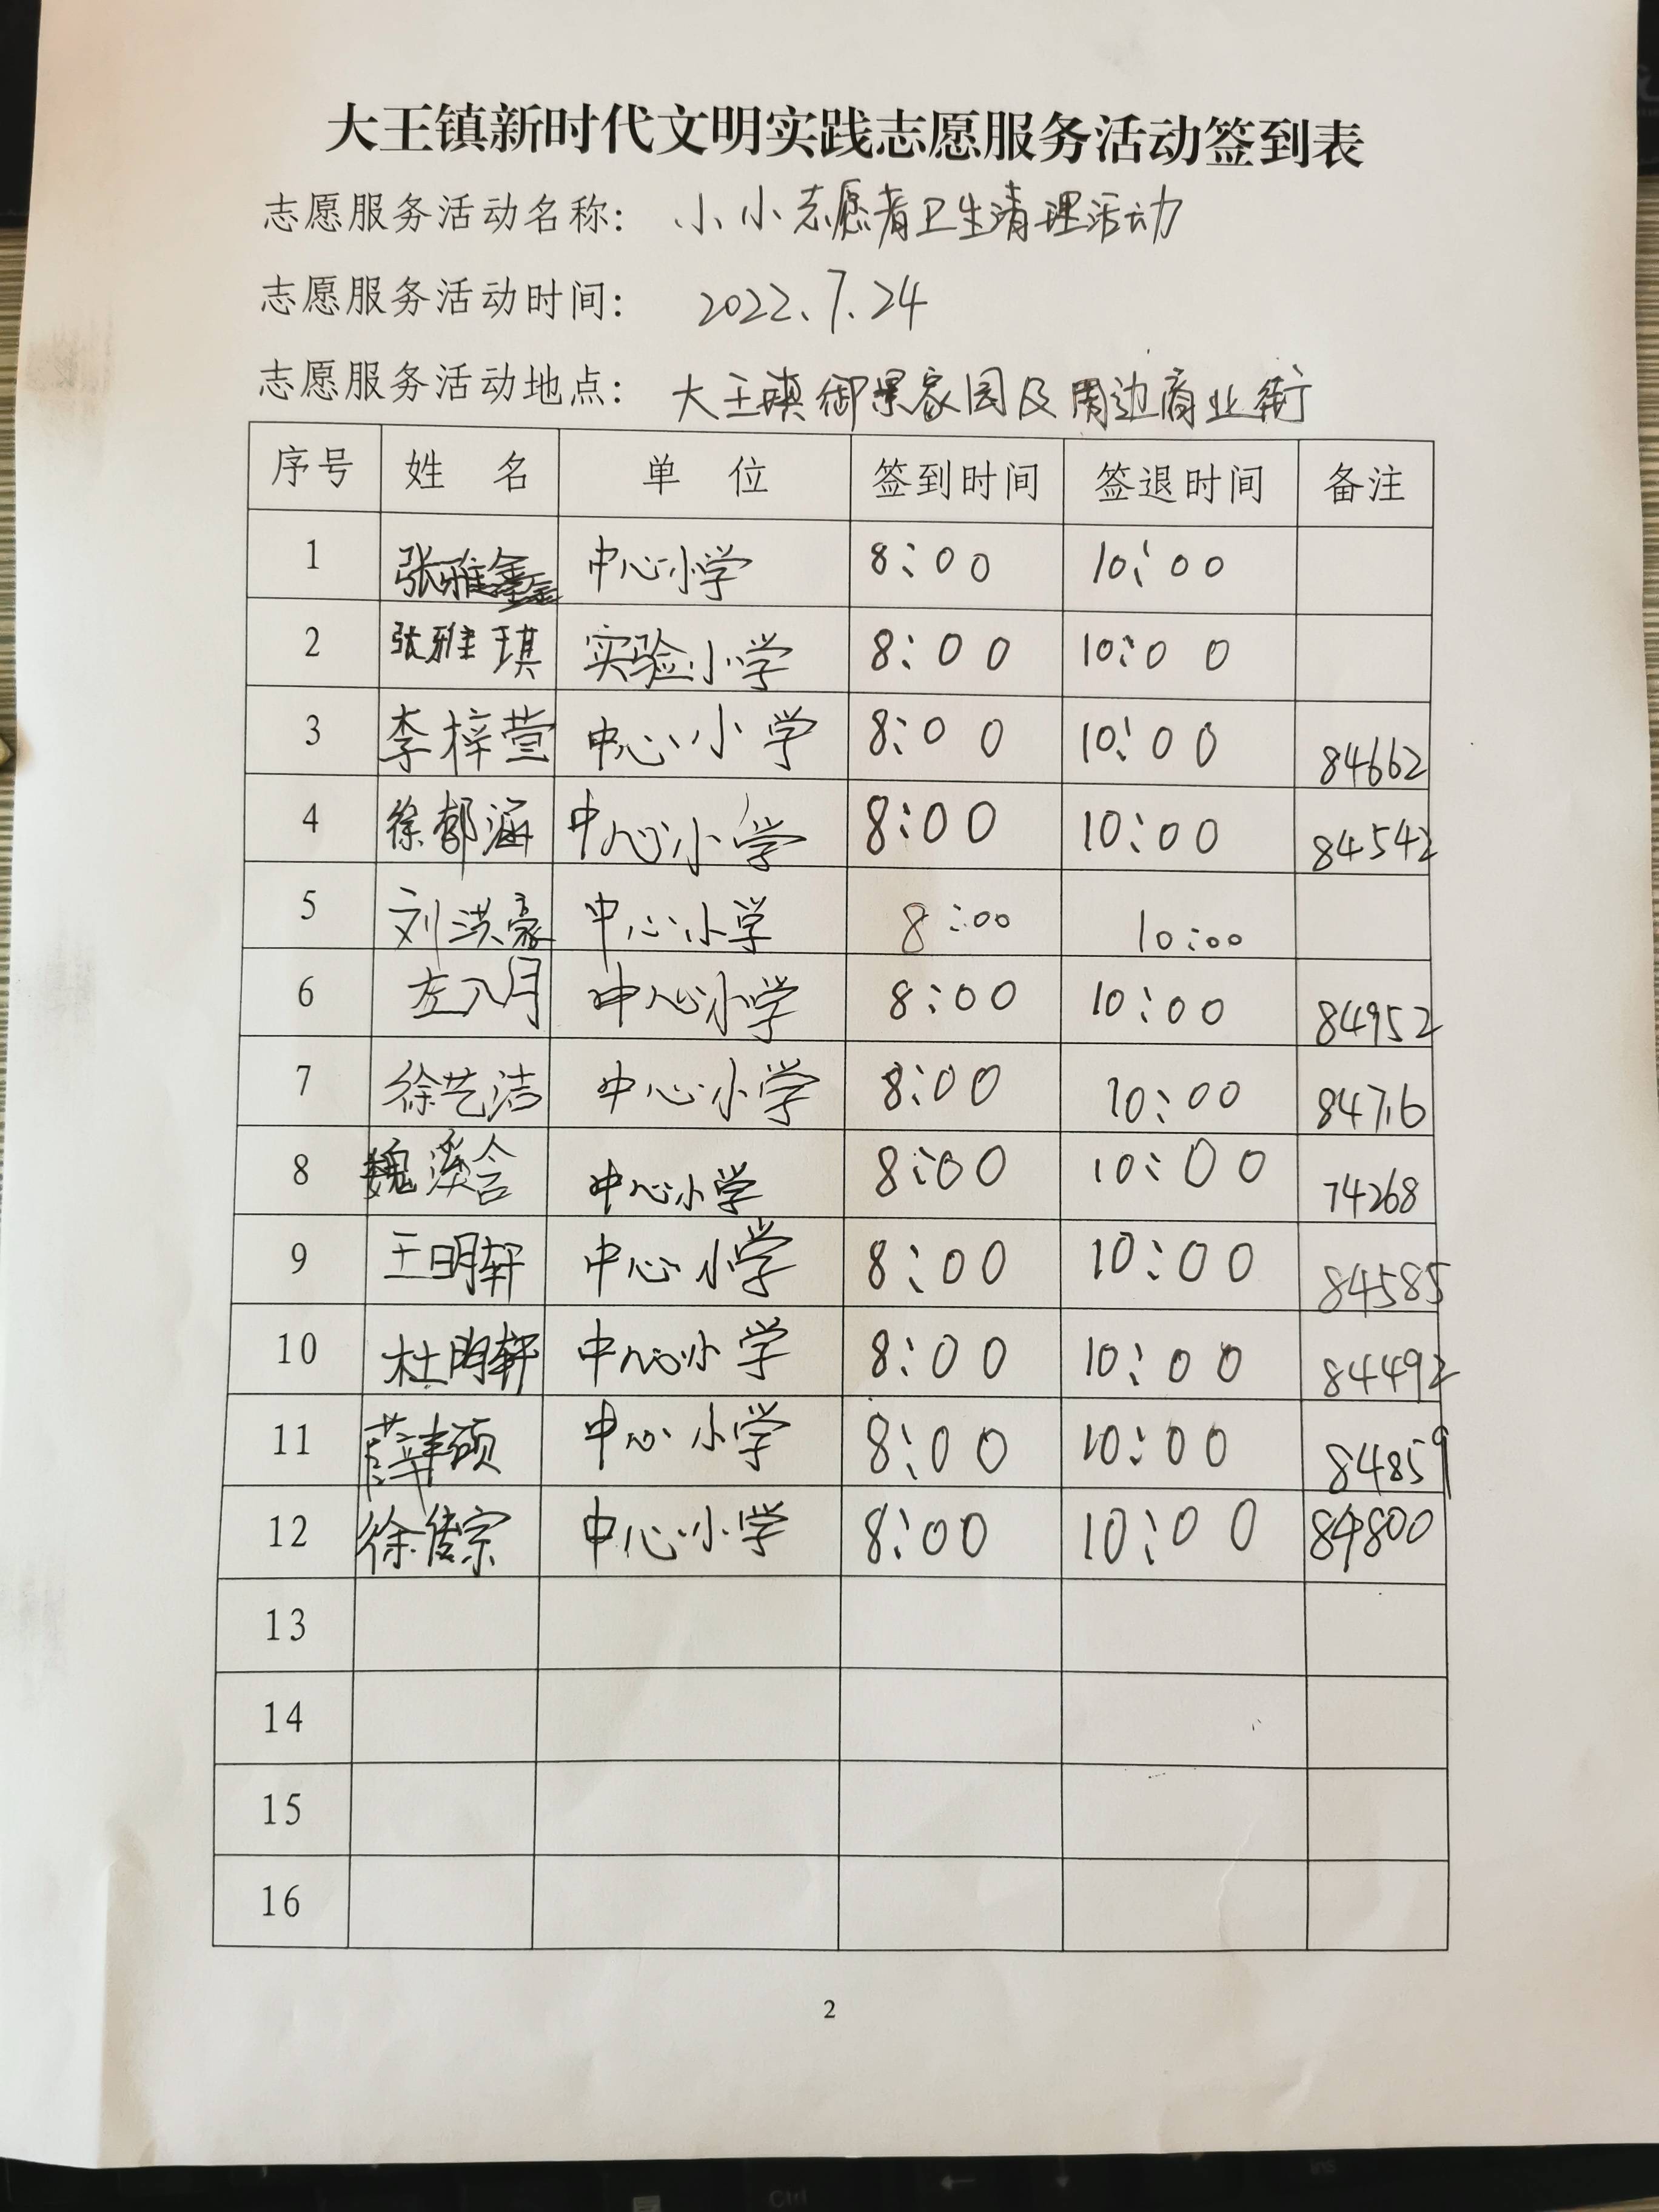 大王镇新时代文明实践志愿服务活动签到表
志愿服务活动名称： 小小志愿者卫生清理活动
志愿服务活动时间： 2022.7.24
志愿服务活动地点： 大王镇御景家园及周边商业街
序号 姓 名 单 位 签到时间 签退时间 备注
1 张雅鑫 中心小学 8:00 10:00
2 张雅琪 实验小学 8:00 10:00
3 李梓萱 中心小学 8:00 10:00 84662
4 徐郡涵 中心小学 8:00 10:00 84542
5 刘洪豪 中心小学 8:00 10:00
6 左入月 中心小学 8:00 10:00 84952
7 徐艺洁 中心小学 8:00 10:00 84716
8 魏溪含 中心小学 8:00 10:00 74268
9 王明轩 中心小学 8:00 10:00 84585
10 杜明轩 中心小学 8:00 10:00 84492
11 薛丰硕 中心小学 8:00 10:00 84859
12 徐俊宗 中心小学 8:00 10:00 84800
13
14
15
16
2
Ctrl
ins